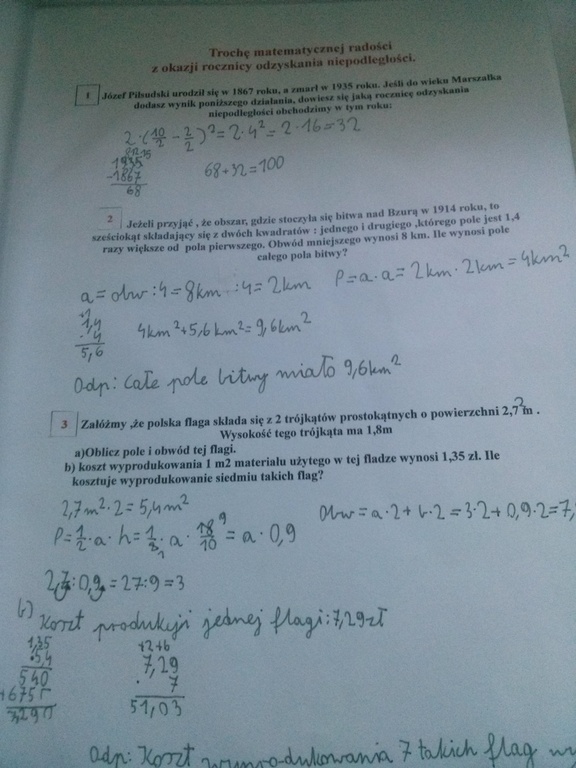 Trochę matematycznej radości
z okazji rocznicy odzyskania niepodległości.
1 Józef Piłsudski urodził się w 1867 roku, a zmarł w 1935 roku. Jeśli do wieku Marszałka
dodasz wynik poniższego działania, dowiesz się jaką rocznicę odzyskania
niepodległości obchodzimy w tym roku:
2·(10/2 - 2/2)²=2·4²=2·16=32
1935
-1867
68
68+32=100
2 Jeżeli przyjąć , że obszar, gdzie stoczyła się bitwa nad Bzurą w 1914 roku, to
sześciokąt składający się z dwóch kwadratów : jednego i drugiego ,którego pole jest 1,4
razy większe od pola pierwszego. Obwód mniejszego wynosi 8 km. Ile wynosi pole
całego pola bitwy?
a = obw :4 = 8km :4= 2km P=a·a= 2km·2km=4km²
1,4
·4
5,6
4km²+5,6km²=9,6km²
Odp: Całe pole bitwy miało 9,6km²
3 Załóżmy ,że polska flaga składa się z 2 trójkątów prostokątnych o powierzchni 2,7 m² .
Wysokość tego trójkąta ma 1,8m
a)Oblicz pole i obwód tej flagi.
b) koszt wyprodukowania 1 m2 materiału użytego w tej fladze wynosi 1,35 zł. Ile
kosztuje wyprodukowanie siedmiu takich flag?
2,7m²·2=5,4m²
Obw=a·2+b·2=3·2+0,9·2=7,
P=1/2·a·h=1/2·a·18/10=a·0,9
2,7:0,9=27:9=3
b)
Koszt produkcji jednej flagi:7,29zł
1,35
·5,4
540
+675
+2+6
7,29
· 7
51,03
Odp: Koszt wyprodukowania 7 takich flag